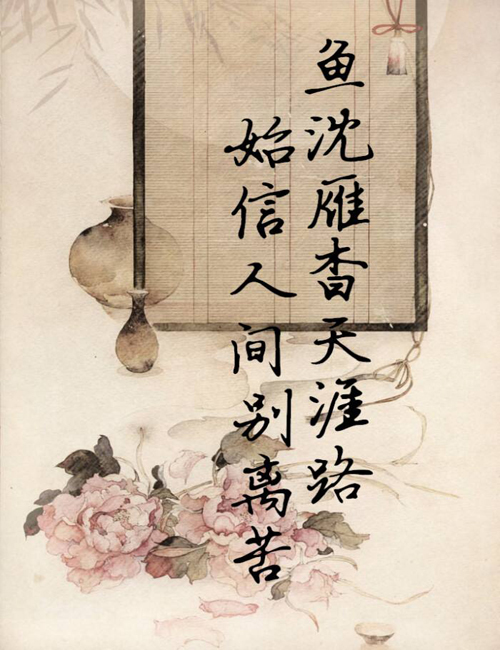 鱼沈雁杳天涯路
始信人间别离苦